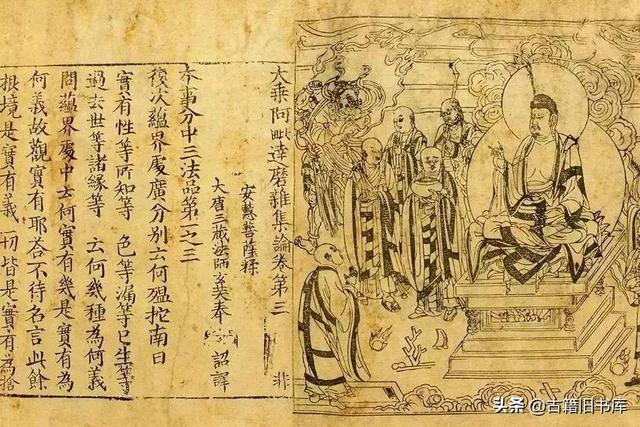 大乘阿毗達磨雜集論卷第三 非
安慧菩薩糅
大唐三藏法師玄奘奉 詔譯
本事分中三法品第一之三
復次蘊界處廣分別云何嗢拕南曰
實有性等所知等 色等漏等已生等
過去世等諸緣等 云何幾種為何義
問蘊界處中云何實有幾是實有為
何義故觀實有耶答不待名言此餘
根境是實有義一切皆是實有為捨
头条 @古籍旧书库